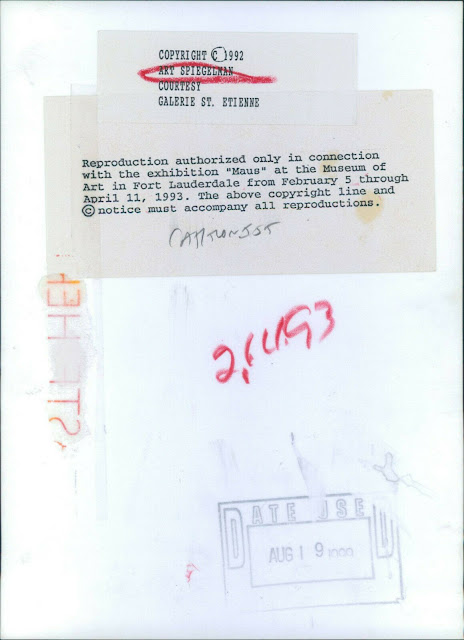 COPYRIGHT © 1992
ART SPIEGELMAN
COURTESY
GALERIE ST. ETIENNE
Reproduction authorized only in connection
with the exhibition "Maus" at the Museum of
Art in Fort Lauderdale from February 5 through
April 11, 1993. The above copyright line and
© notice must accompany all reproductions.
CARTOONIST
DATE USED
AUG 1 9